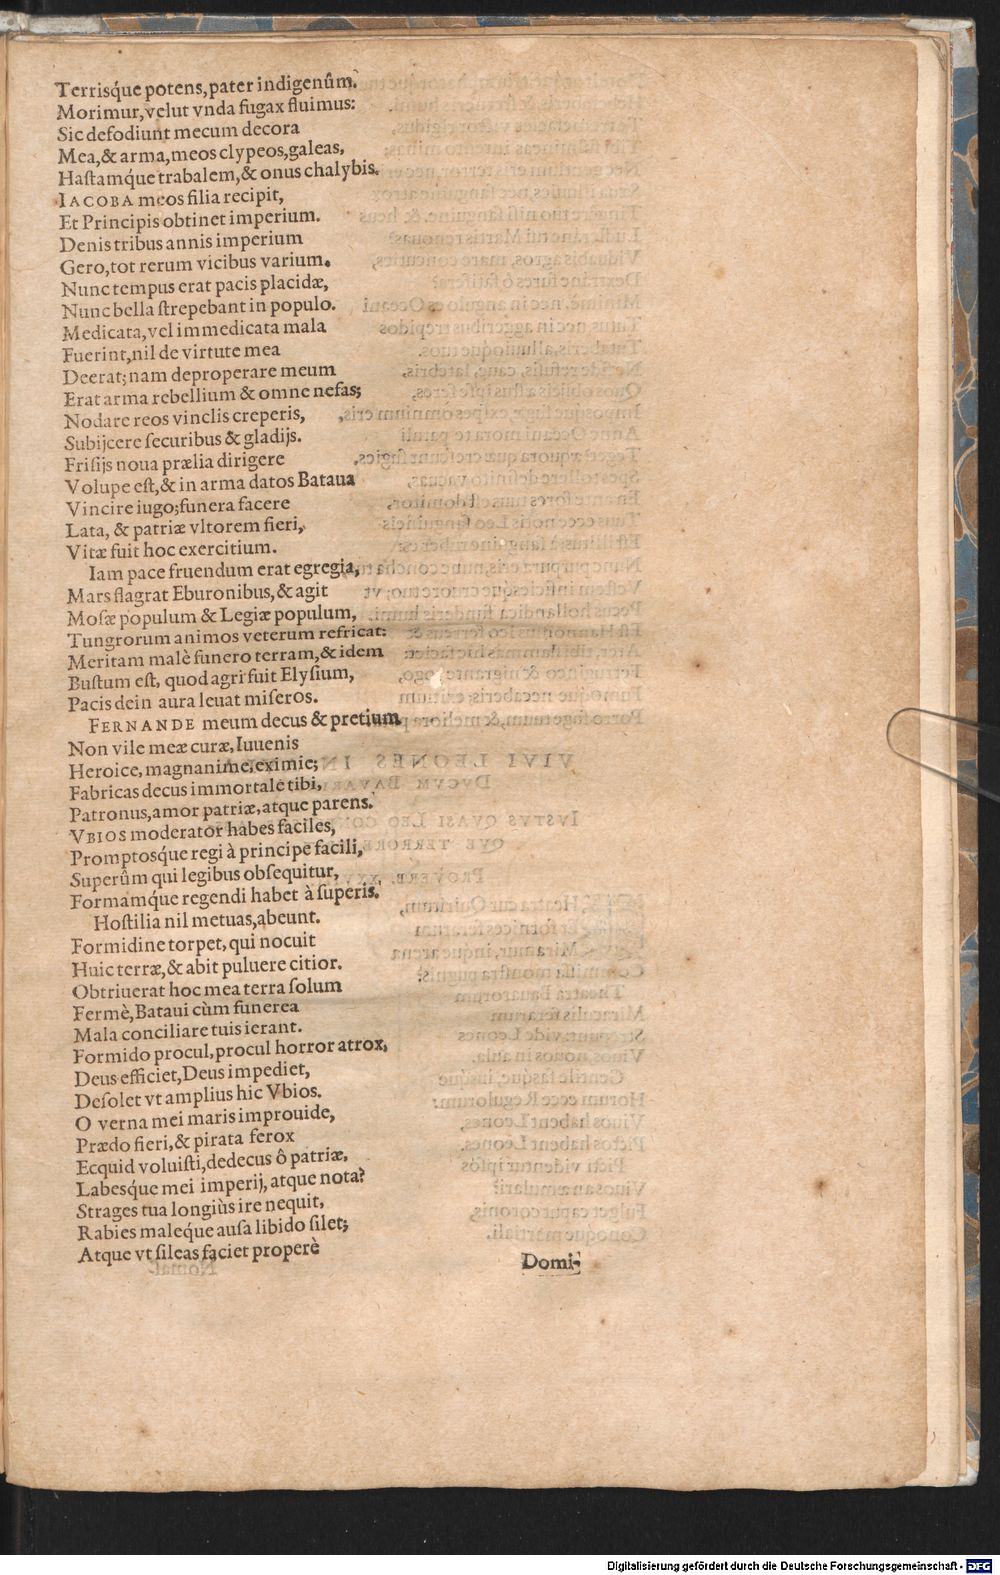 Terrisq́ue potens, pater indigenûm.
Morimur, velut vnda fugax fluimus:
Sic defodiunt mecum decora
Mea, & arma, meos clypeos, galeas,
Hastamq́ue trabalem, & onus chalybis.
IACOBA meos filia recipit,
Et Principis obtinet imperium.
Denis tribus annis imperium
Gero, tot rerum vicibus varium.
Nunc tempus erat pacis placidæ,
Nunc bella strepebant in populo.
Medicata, vel immedicata mala
Fuerint, nil de virtute mea
Deerat; nam deproperare meum
Erat arma rebellium & omne nefas;
Nodare reos vinclis creperis,
Subijcere securibus & gladijs.
Frisijs noua prælia dirigere
Volupe est, & in arma datos Bataua
Vincire iugo; funera facere
Lata, & patriæ vltorem fieri,
Vitæ fuit hoc exercitium.
Iam pace fruendum erat egregia,
Mars flagrat Eburonibus, & agit
Mosæ populum & Legiæ populum,
Tungrorum animos veterum refricat:
Meritam malè funero terram, & idem
Bustum est, quod agri fuit Elysium,
Pacis dein aura leuat miseros.
FERNANDE meum decus & pretium
Non vile meæ curæ, Iuuenis
Heroice, magnanime, eximie;
Fabricas decus immortale tibi,
Patronus, amor patriæ, atque parens.
VBIOS moderator habes faciles,
Promptosq́ue regi à principe facili,
Superûm qui legibus obsequitur,
Formamq́ue regendi habet à superis.
Hostilia nil metuas, abeunt.
Formidine torpet, qui nocuit
Huic terræ, & abit puluere citior.
Obtriuerat hoc mea terra solum
Fermè, Bataui cùm funerea
Mala conciliare tuis ierant.
Formido procul, procul horror atrox,
Deus efficiet, Deus impediet,
Desolet vt amplius hic Vbios.
O verna mei maris improuide,
Prædo fieri, & pirata ferox
Ecquid voluisti, dedecus ô patriæ,
Labesq́ue mei imperij, atque nota?
Strages tua longiùs ire nequit,
Rabies maleq́ue ausa libido silet;
Atque vt sileas faciet properè
Domi-
Digitalisierung gefördert durch die Deutsche Forschungsgemeinschaft - DFG